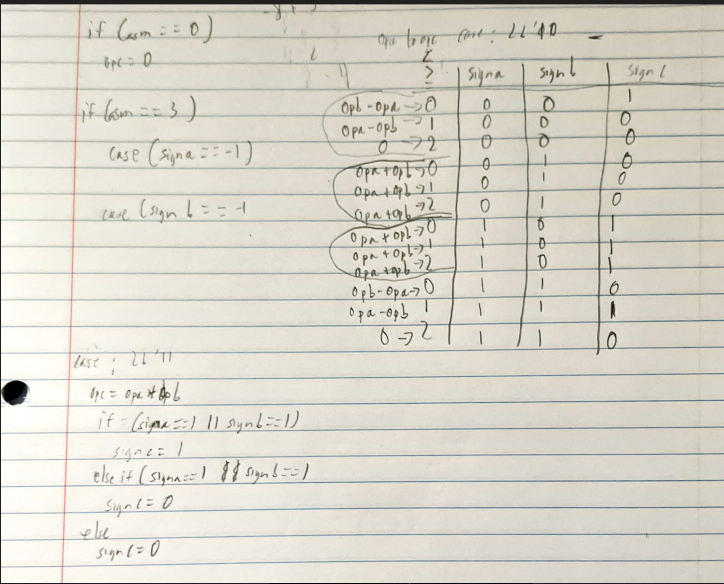 if (asm == 0)
opc = 0
if (asm == 3)
case (signa == -1)
case (sign b == -1
opa logic case: 2b'10
2
signa signb signc
opb-opa → 0 0 0 1
opa-opb → 1 0 0 0
0 → 2 0 0 0
opa+opb → 0 0 1 0
opa+opb → 1 0 1 0
opa+opb → 2 0 1 0
opa+opb → 0 1 0 1
opa+opb → 1 1 0 1
opa+opb → 2 1 0 1
opb-opa → 0 1 1 0
opa-opb 1 1 1 1
0 → 2 1 1 0
case: 2b'11
opc = opa * opb
if = (signa==1 || signb==1)
signc = 1
else if (signa==1 && signb==1
signc = 0
else
signc = 0